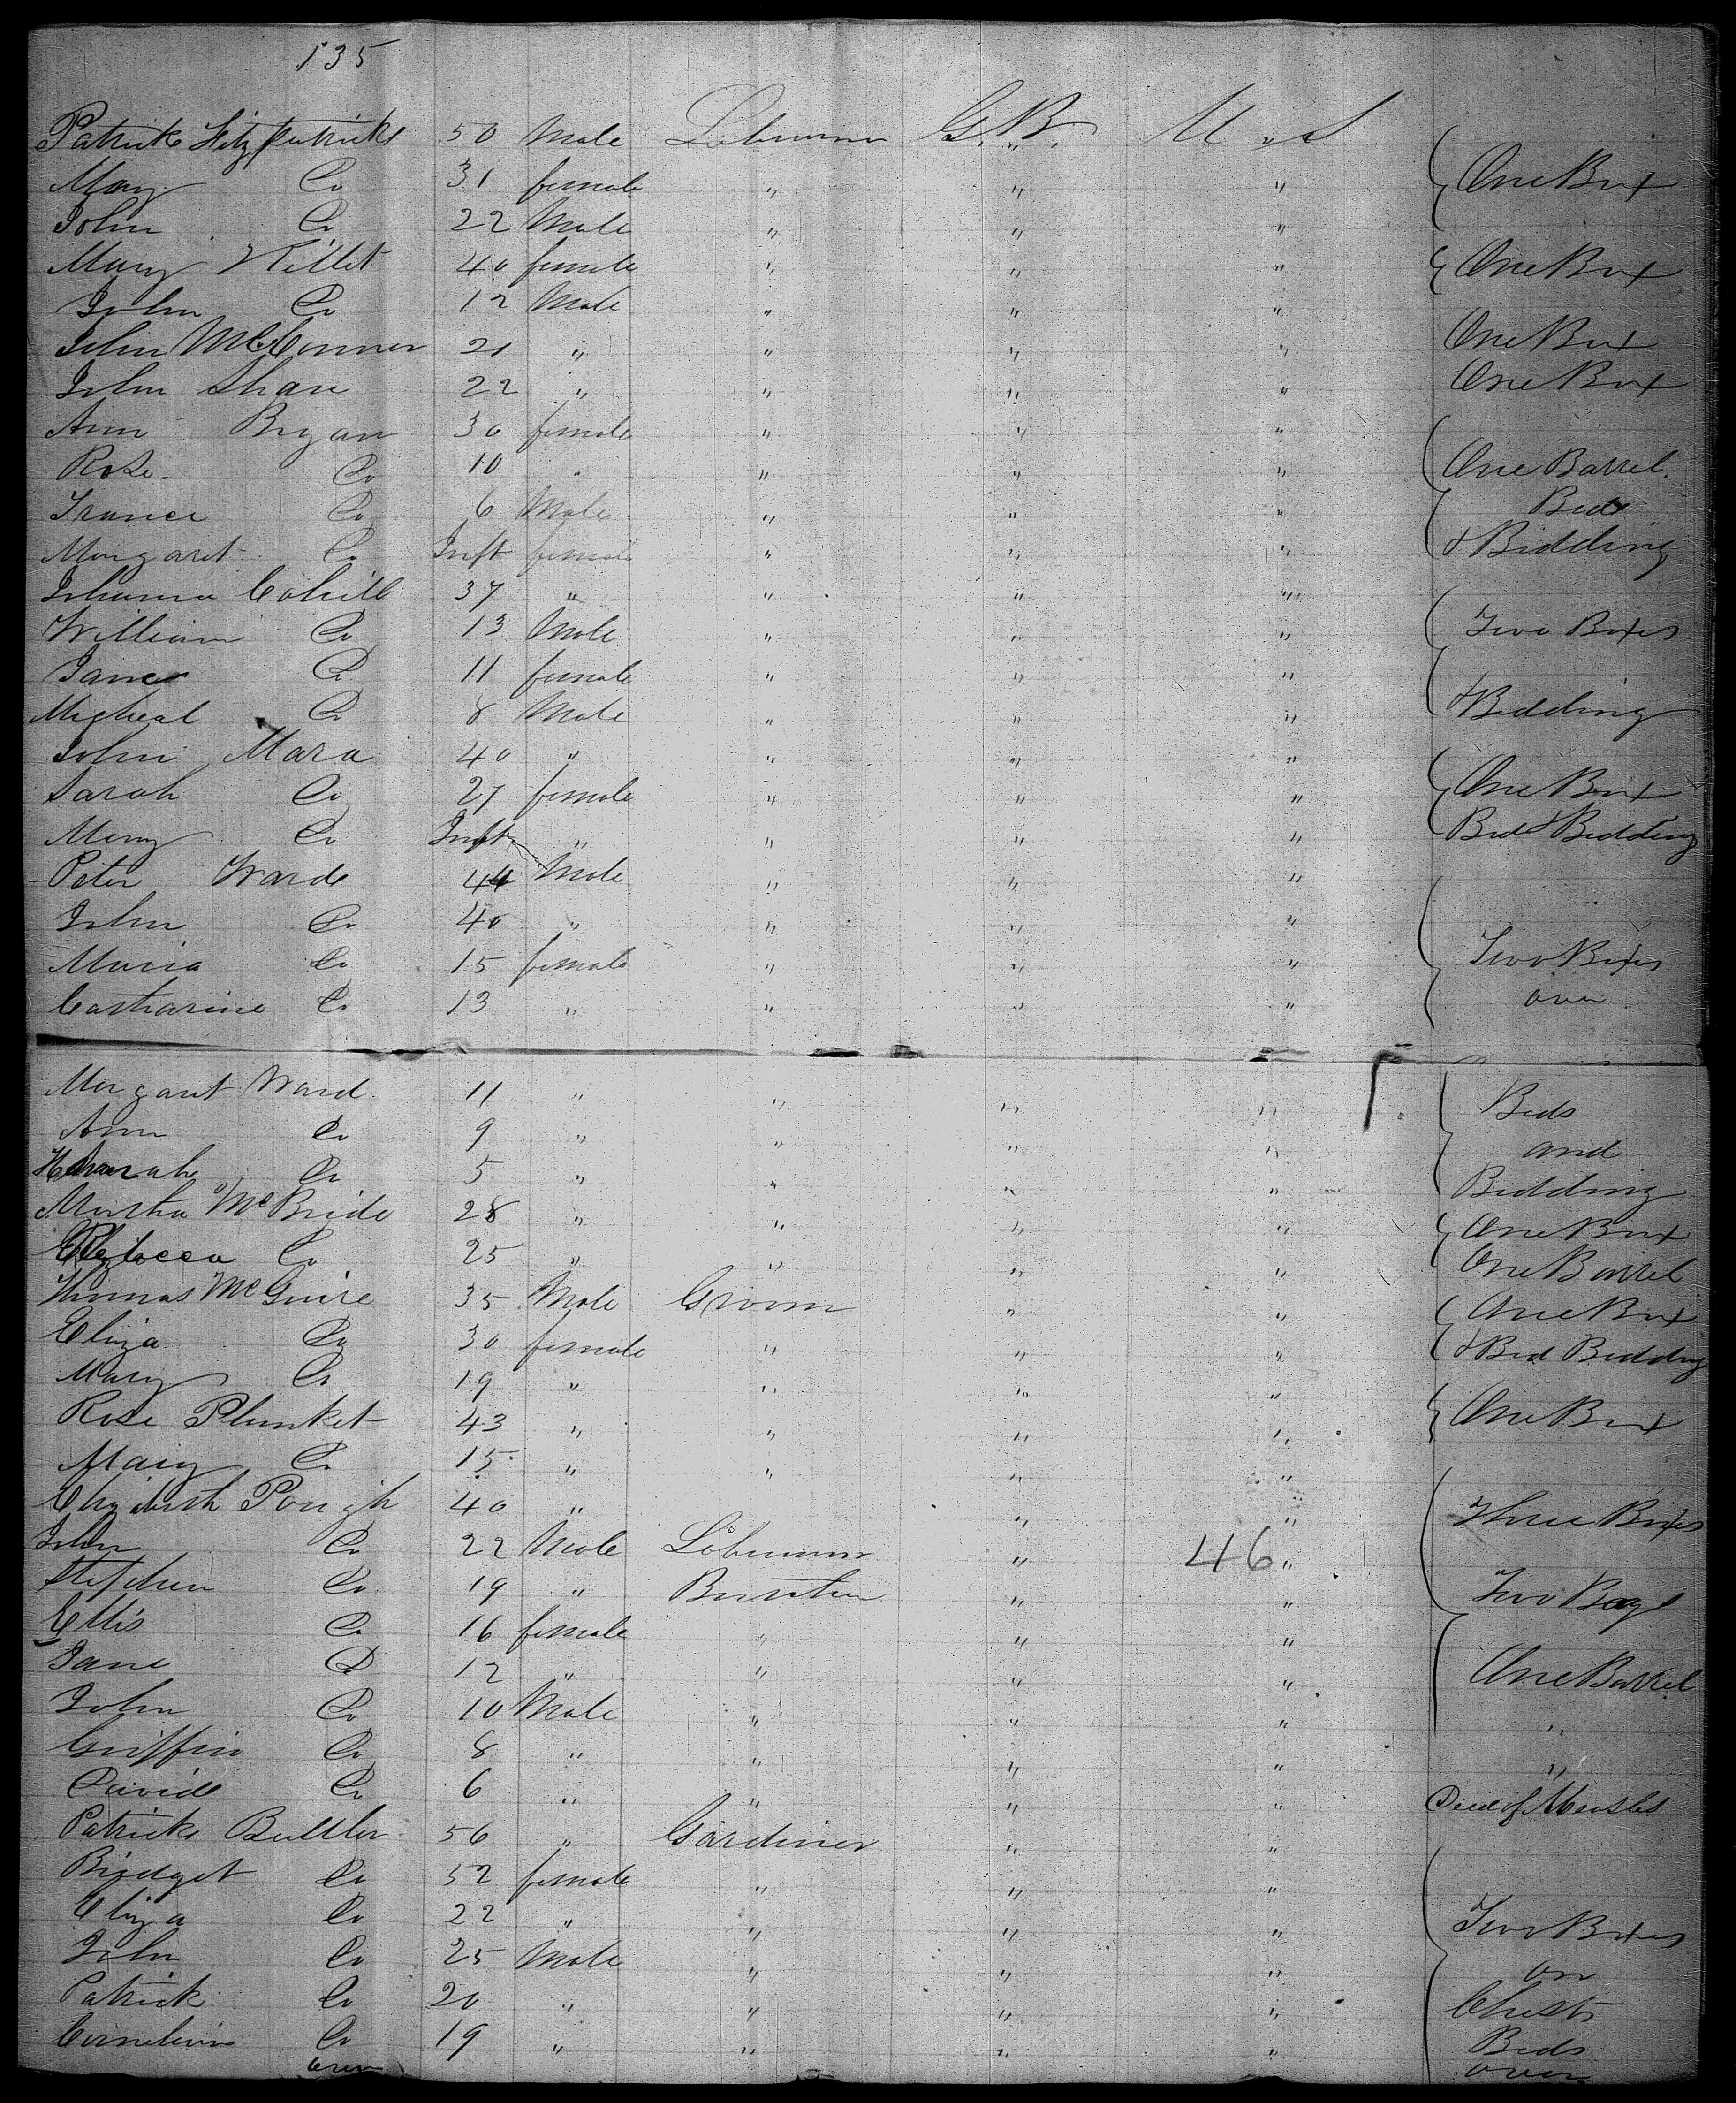 135
Patrick Fitzpatrick 50 Male Labourer G.B. U " S
May Do 31 female " " " One Box
John Do 22 Male " " "
Mary Willet 40 female " " " One Box
John Do 12 Male " " "
John McConner 21 " " " " One Box
John Shane 22 " " " " One Box
Ann Bryan 30 female " " "
Rose Do 10 " " " " One Barrel
France Do 6 Male " " " Beds
Margaret Do Inft female " " " & Bidding
Johanna Cahill 37 " " " "
William Do 13 Male " " " Two Boxes
Jane Do 11 female " " "
Migheal Do 8 Male " " " & Bidding
John Mara 40 " " " "
Sarah Do 27 female " " " One Box
Mary Do Inft " " " " Bed & Bidding
Peter Ward 44 Male " " "
John Do 40 " " " "
Maria Do 15 female " " " Two Boxes
Catharine Do 13 " " " " over
Margaret Ward 11 " " " " Beds
Ann Do 9 " " " " and
Hannah Do 5 " " " " Bidding
Martha McBride 28 " " " " One Box
Rebecca Do 25 " " " " One Barrel
Thomas McGuire 35 Male Groom " " One Box
Eliza Do 30 female " " " & Bed Bidding
Mary Do 19 " " " "
Rose Plunket 43 " " " " One Box
Mary Do 15 " " " "
Elizabeth Pough 40 " " " Three Boxes
John Do 22 Male Labourer " 46 "
Stephen Do 19 " " " Two Bags
Ellis Do 16 female " " "
Jane Do 12 " " " " One Barrel
John Do 10 Male " " " "
Griffin Do 8 " " " " "
David Do 6 " " " " Died of Measles
Patrick Buttler 56 " Gardiner " "
Bridget Do 52 female " " "
Eliza Do 22 " " " " Two Boxes
John Do 25 Male " " " on
Patrick Do 20 " " " " Chest
Cornelius Do 19 " " " " Beds
over over